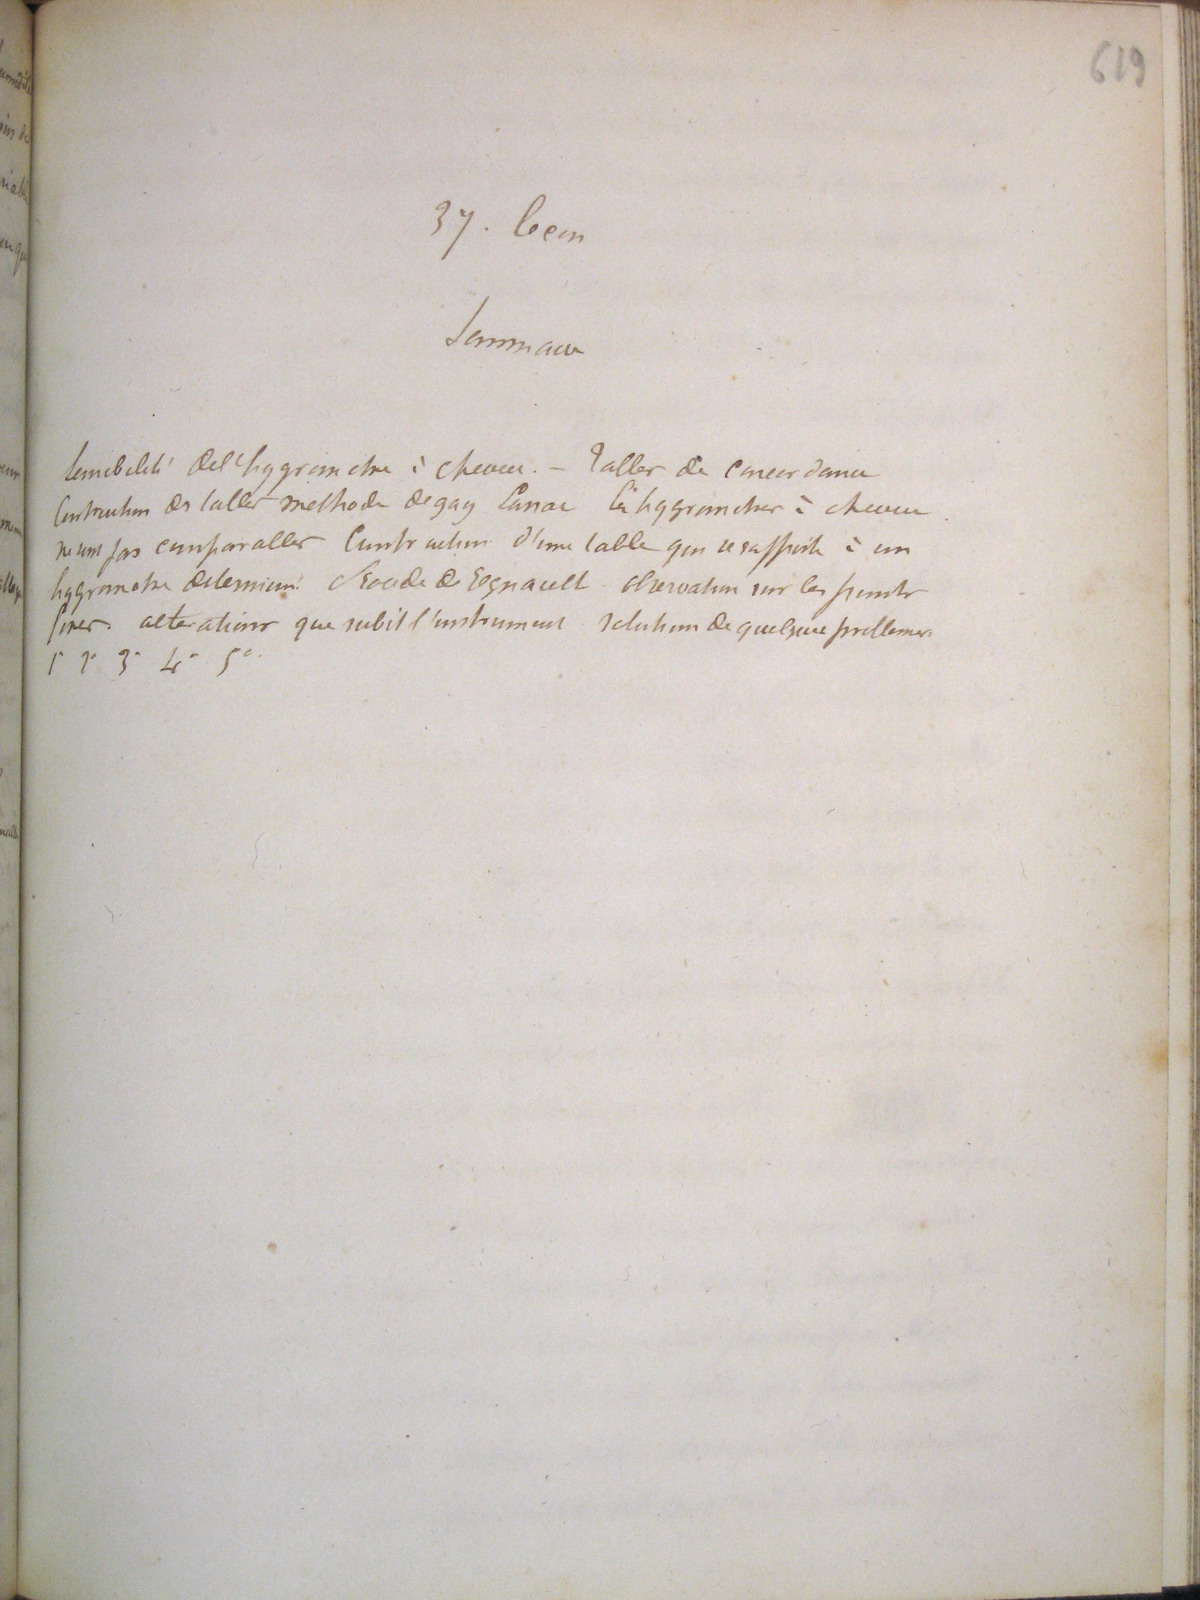 619
37. leçon
Sommaire
Sensibilité de l'hygrometre à cheveu. — Tables de concordance
Construction des tables methode de gay Lussac les hygrometres à cheveu
ne sont pas comparables Construction d'une table qui se rapporte à un
hygrometre determiné Procédé de Regnault observation sur les points
fixes. alterations que subit l'instrument solution de quelques problemes
1° 2° 3° 4° 5°.